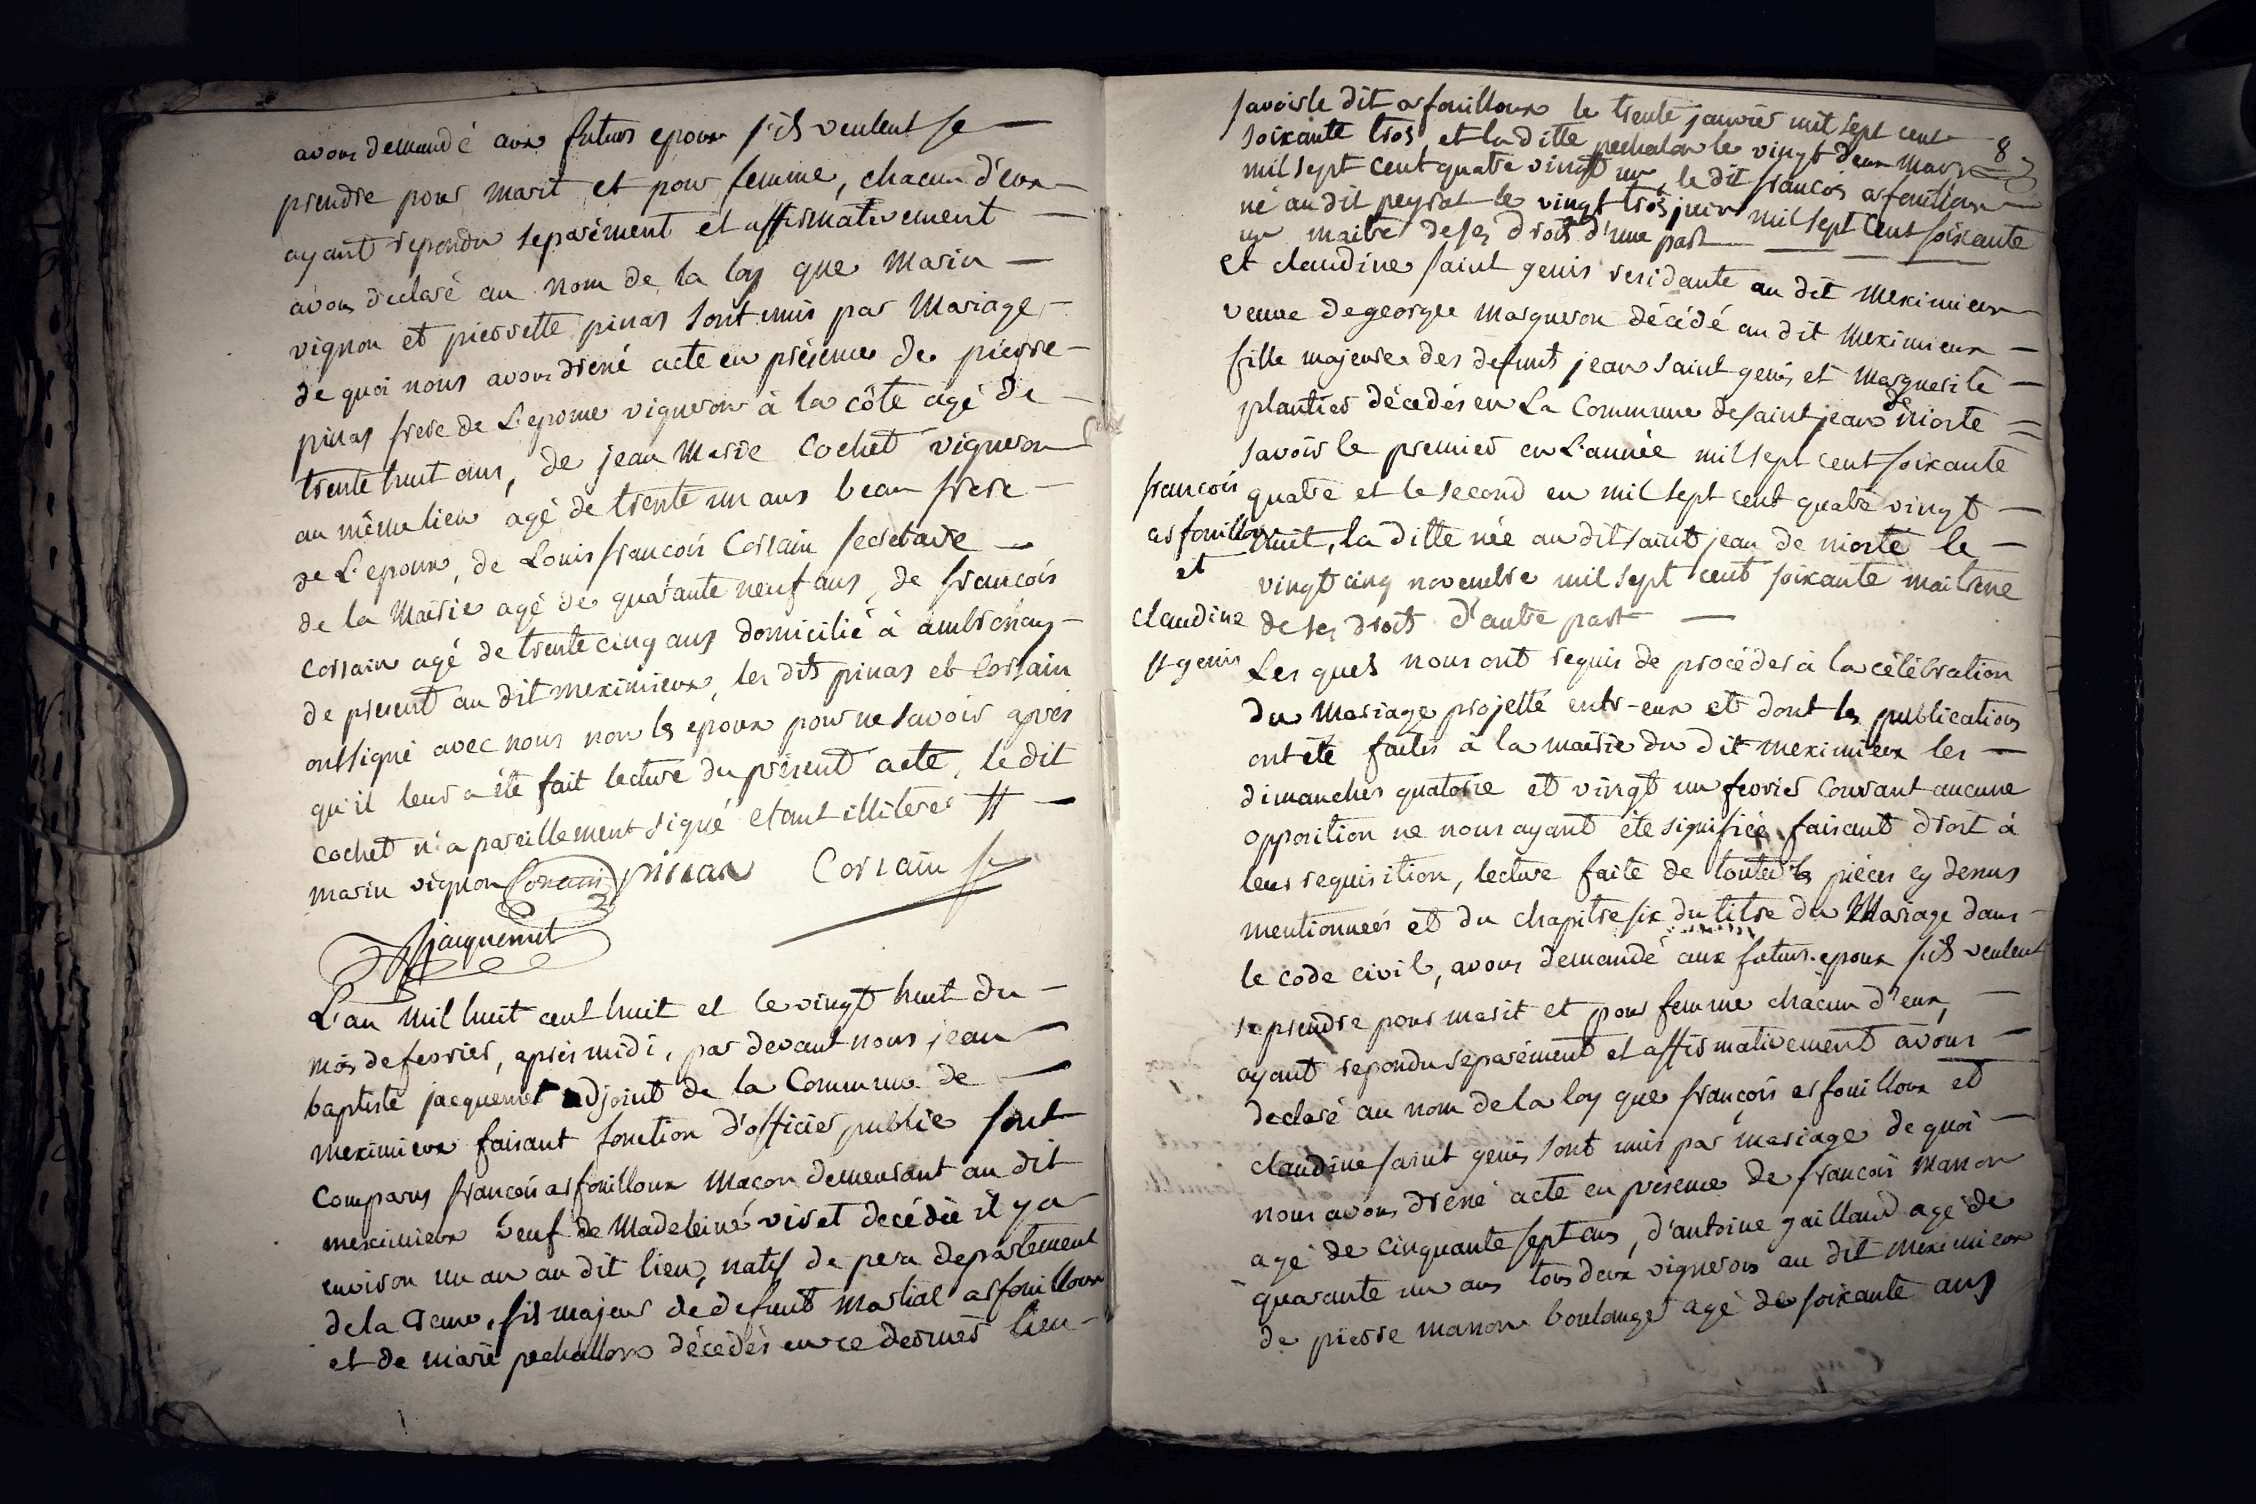 avons demandé aux futurs epoux s'ils veulent se
prendre pour marit et pour femme, chacun d'eux
ayant repondu separément et affirmativement
avons declaré au nom de la loy que Marin
vignon et pierrette pinas sont unis par Mariage
de quoi nous avons dréné acte en présence de pierre
pinas frere de L'epouse vigneron à la côte agé de
trente huit ans, de jean Marie Cochet vigneron
au même lieu agé de trente un ans beau frere
de L'epoux, de Louis françois Corsain secretaire
de la Mairie agé de quarante neuf ans, de françois
corsain agé de trente cinq ans domicilié à ambronay
de present au dit meximieux, les dits pinas et Corsain
ont signé avec nous non les epoux pour ne savoir après
qu'il leur a été fait lecture du present acte, le dit
cochet n'a pareillement signé etant illiteré
marin vignon Corsain pinas Corsain
Jacquemet
L'an mil huit cent huit et le vingt huit du
mois de fevrier, après midi, par devant nous jean
baptiste jacquemet adjoint de la Commune de
meximieux faisant fonction d'officier public sont
comparus françois arfouilloux Maçon demeurant au dit
meximieux veuf de Madeleine viret decédée il y a
environ un an au dit lieu, natif de pera departement
de la Creuse, fils majeur de defunt Martial arfouilloux
et de marie pechallon décédés en ce dernier lieu
8
savoir le dit arfouilloux le trente janvier mil sept cent
soixante trois, et la ditte pechalon le vingt deux Mars
mil sept cent quatre vingt un, le dit françois arfouilloux
né au dit peyrat le vingt trois juin mil sept cent soixante
un maitre de ses droits d'une part
et claudine saint genis residante au dit meximieux
veuve de george Margueron décédé au dit meximieux
fille majeure des defunts jean saint genis et Marguerite
plantier décedés en La Commune de saint jean de niorte
savoir le premier en L'année mil sept cent soixante
françois
arfouilloux
et
claudine
st genis
quatre et le second en mil sept cent quatre vingt
huit, la ditte née au dit saint jean de niorte le
vingt cinq novembre mil sept cent soixante maitresse
de ses droits d'autre part
Les quels nous ont requis de procéder à la célébration
du Mariage projetté entr-eux et dont les publications
ont été faites à la mairie du dit meximieux les
dimanches quatorze et vingt un fevrier Courant aucune
opposition ne nous ayant été signifiée, faisant droit à
leur requisition, lecture faite de toutes les piéces cy dessus
mentionnées et du chapitre six du titre du Mariage dans
le code civil, avons demandé aux futurs epoux s'ils veulent
se prendre pour marit et pour femme chacun d'eux,
ayant repondu separément et affirmativement avons
declaré au nom de la loy que françois arfouilloux et
claudine saint genis sont unis par mariage de quoi
nous avons dréné acte en présence de françois Manon
agé de cinquante sept ans, d'antoine gaillaud agé de
quarante un ans tous deux vignerons au dit meximieux
de pierre manon boulanger agé de soixante ans